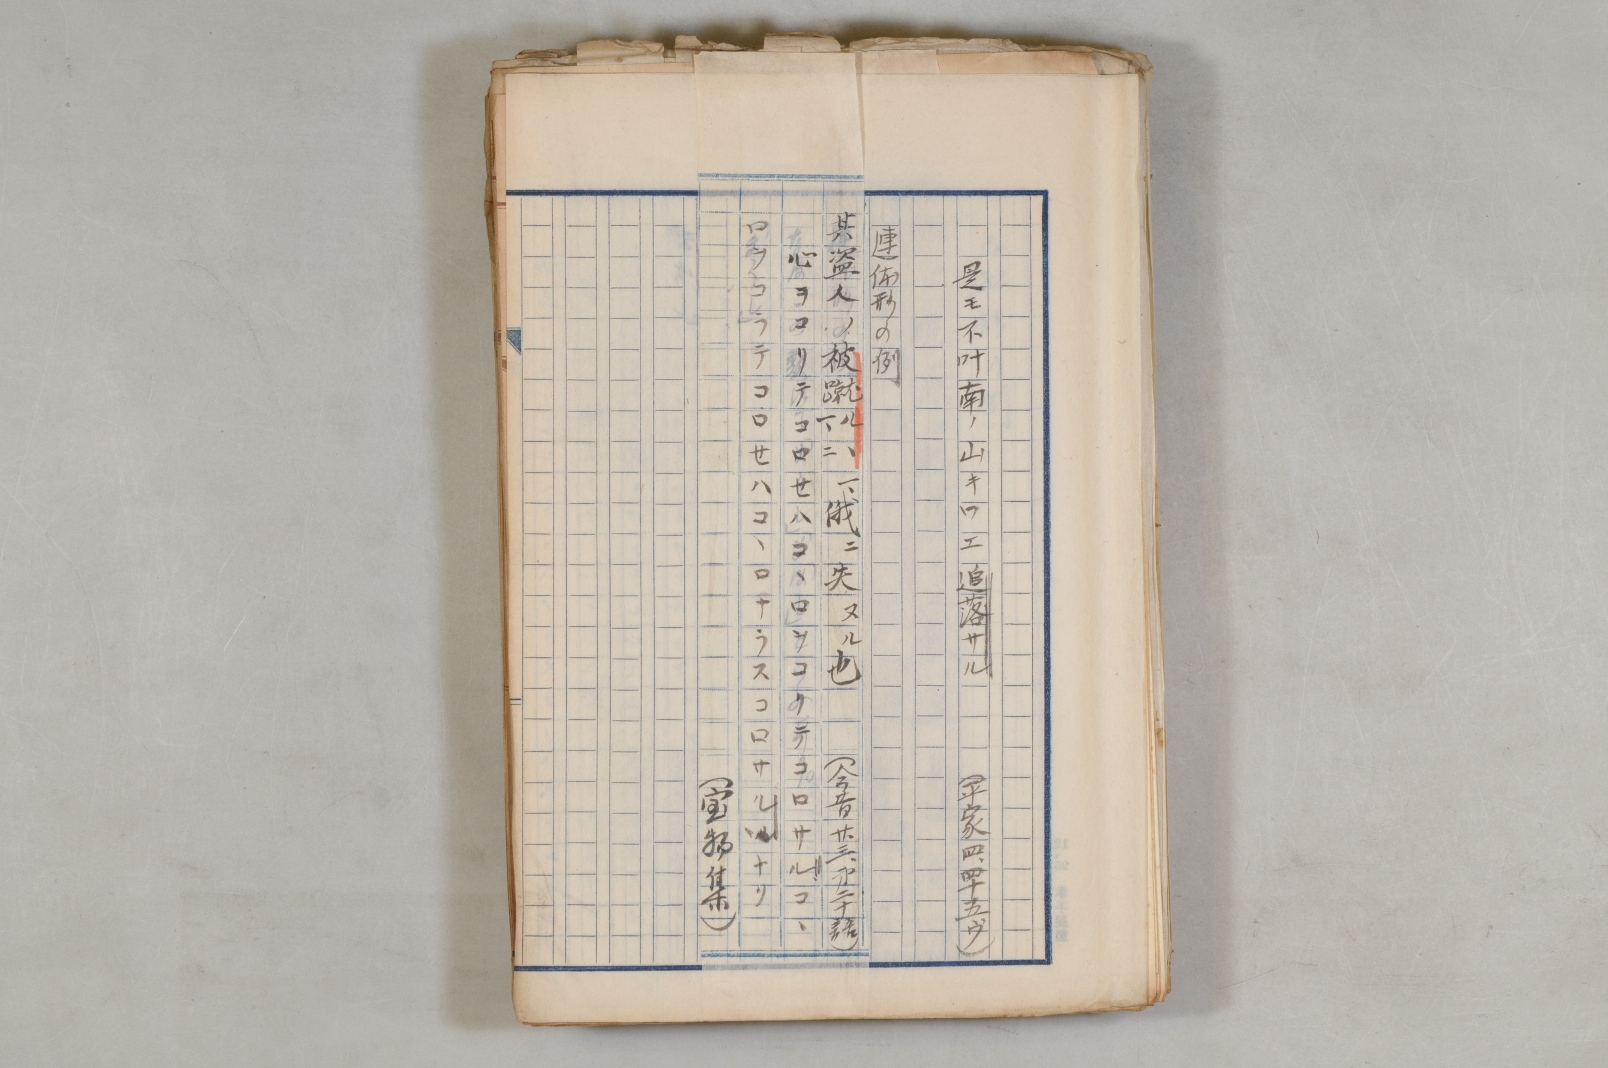 是モ不叶南ノ山キワエ追落サル　（平家四、四十五ウ）
連体形の例
其盗人ノ被蹴ルヽ　俄ニ失ヌル也　（今昔廿三、第二十語）
心ヲコリテコロセハコヽロヲコリテコロサルコヽ
ロヲコラテコロセハコヽロナラスコロサルルナリ
（宝物集）